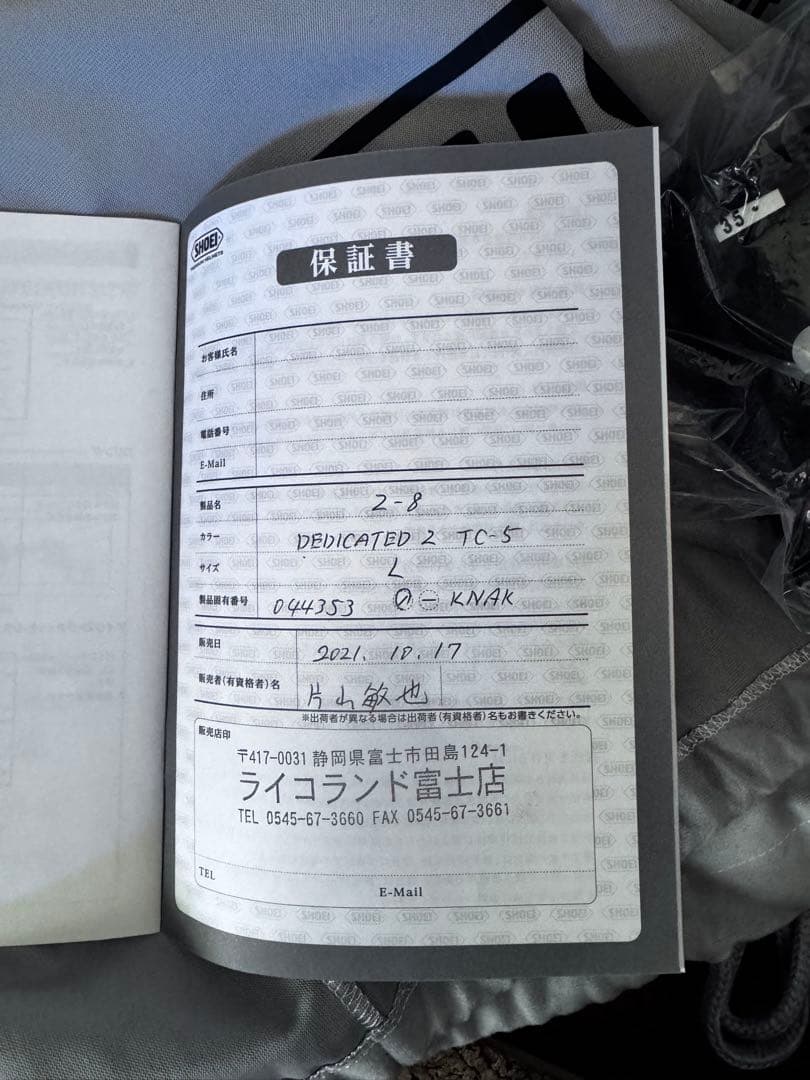 SHOEI
保証書
お客様氏名
住所
電話番号
E-Mail
製品名 Z-8
カラー DEDICATED 2 TC-5
サイズ L
製品固有番号 044353 KNAK
販売日 2021. 10. 17
販売者(有資格者)名 片山敏也
※出荷者が異なる場合は出荷者(有資格者)名もお書きください。
販売店印
〒417-0031 静岡県富士市田島124-1
ライコランド富士店
TEL 0545-67-3660 FAX 0545-67-3661
TEL
E-Mail
35.